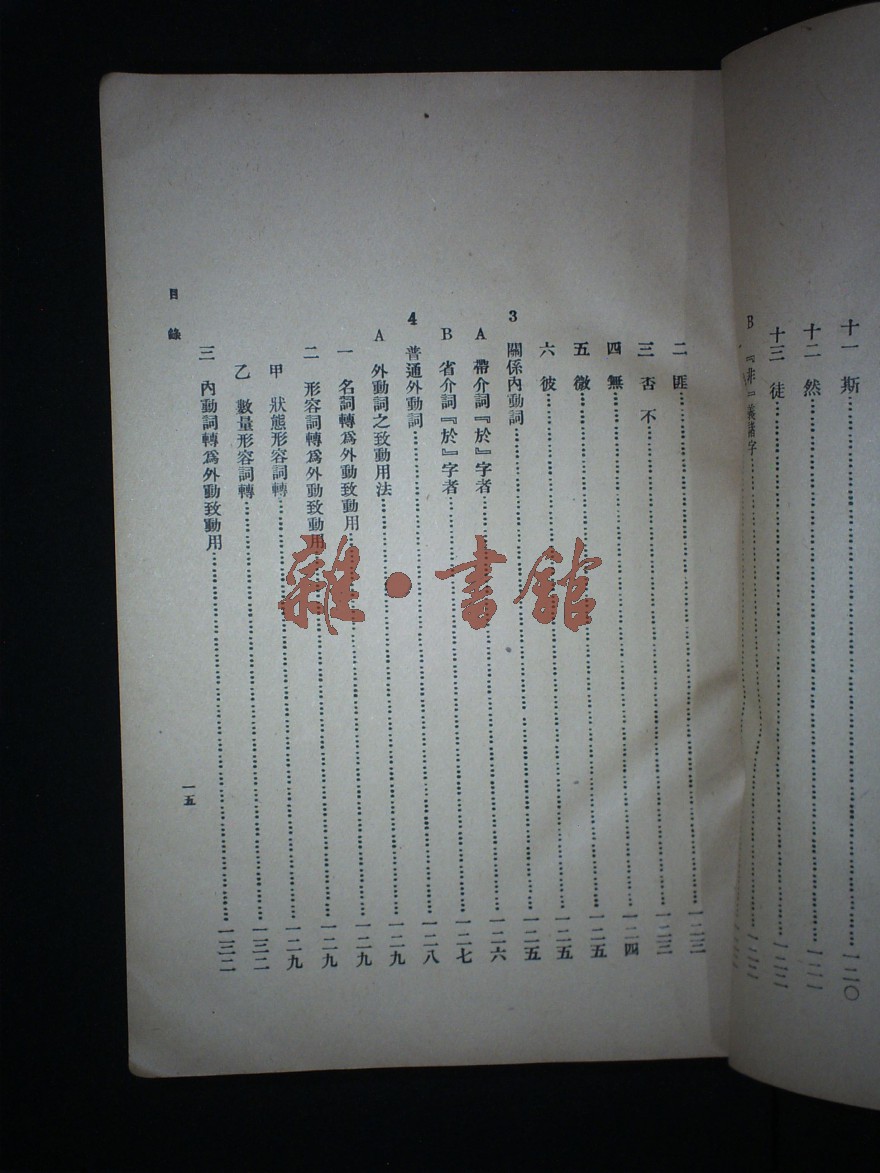 十一 斯……一二〇
十二 然……一二一
十三 徒……一二二
B 『非』義諸字
二 匪……一二三
三 否 不……一二三
四 無……一二四
五 微……一二五
六 彼……一二五
3 關係內動詞……一二五
A 帶介詞『於』字者……一二六
B 省介詞『於』字者……一二七
4 普通外動詞……一二八
A 外動詞之致動用法……一二九
一 名詞轉爲外動致動用……一二九
二 形容詞轉爲外動致動用……一二九
甲 狀態形容詞轉……一二九
乙 數量形容詞轉……一三二
三 內動詞轉爲外動致動用……一三二
目錄
一五
雜·書館